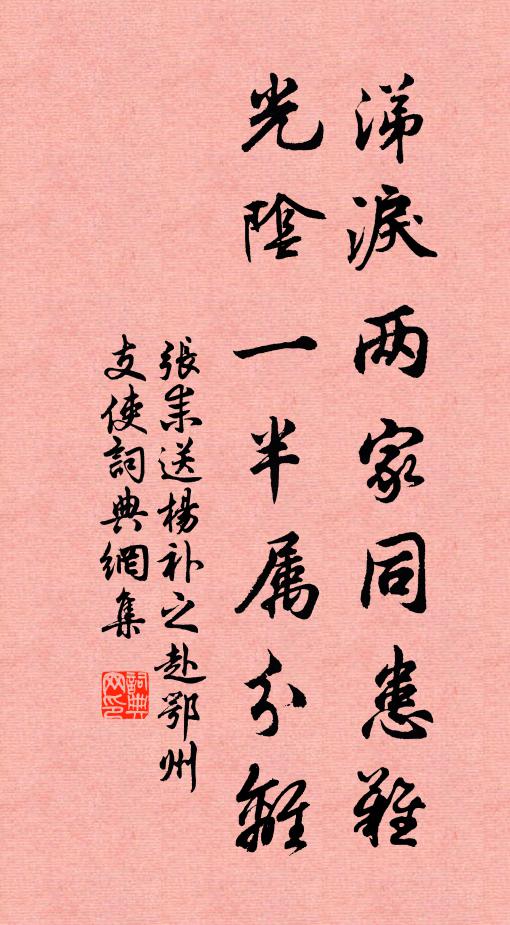 涕淚两家同患難
光陰一半属分離
張耒送楊补之赴鄂州
支使詞典網集
詞典
网印